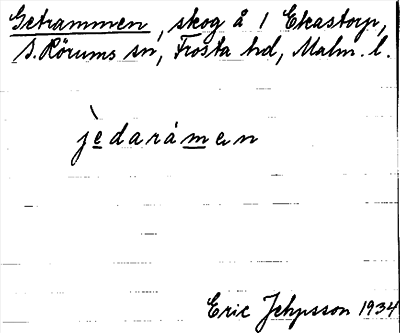 Getrammen, skog å 1 Ekastorp,
S. Rörums sn, Frosta hd, Malm. l.
jèdarámen
Eric Jepsson 1934